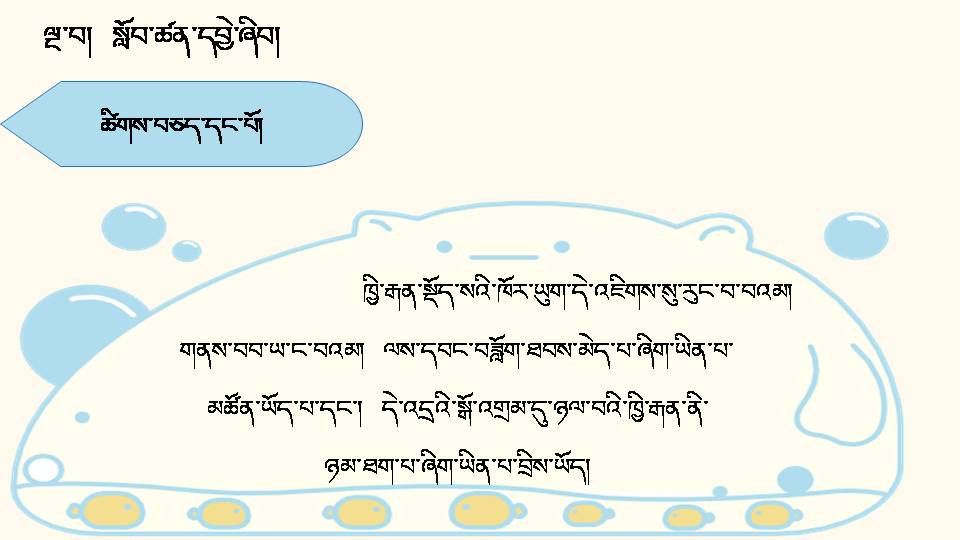 ལྔ་བ།  སློབ་ཚན་དབྱེ་ཞིབ།
ཚིགས་བཅད་དང་པོ།
ཁྱི་རྒན་སྡོད་སའི་ཁོར་ཡུག་དེ་འཇིགས་སུ་རུང་བ་བའམ།
གནས་བབ་ཡ་ང་བའམ།  ལས་དབང་བཟློག་ཐབས་མེད་པ་ཞིག་ཡིན་པ་
མཚོན་ཡོད་པ་དང་།  དེ་འདྲའི་སྒོ་འགྲམ་དུ་ཉལ་བའི་ཁྱི་རྒན་ནི་
ཉམ་ཐག་པ་ཞིག་ཡིན་པ་བྲིས་ཡོད།